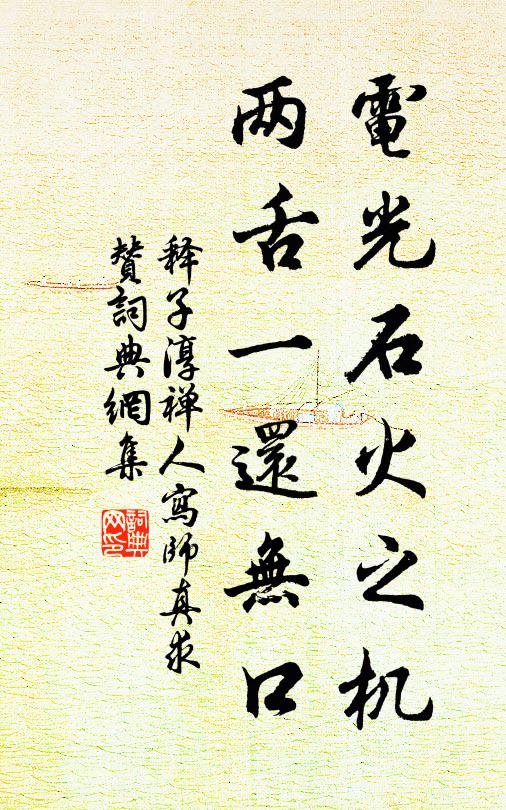 電光石火之机
两舌一還無口
释子淳禅人寫師真求
贊詞典網集
詞典
网印